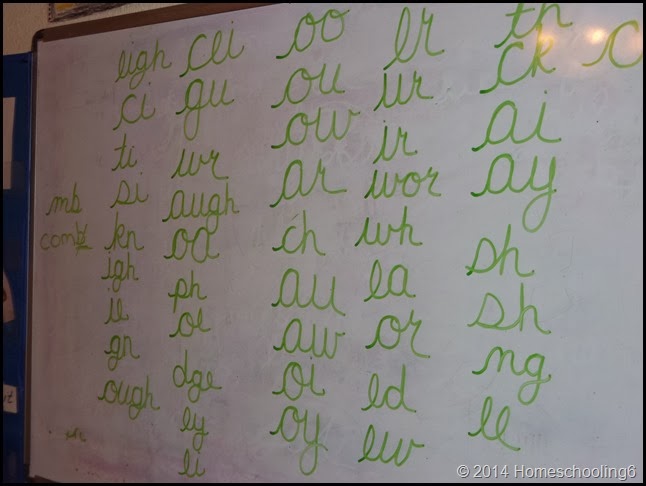 mb
comb
eigh
ci
ti
si
kn
igh
ie
gn
ough
cei
gu
wr
augh
oa
ph
oe
dge
ey
ei
oo
ou
ow
ar
ch
au
aw
oi
oy
er
ur
ir
wor
wh
ea
or
ed
ew
th
ck
ai
ay
sh
sh
ng
ee
© 2014 Homeschooling6